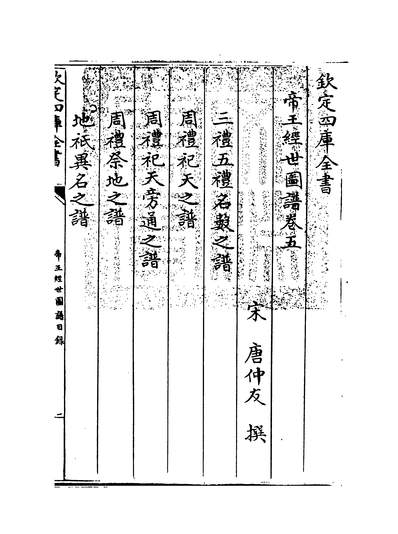 欽定四庫全書
帝王經世圖譜卷五
宋 唐仲友 撰
三禮五禮名數之譜
周禮祀天之譜
周禮祀天旁通之譜
周禮祭地之譜
地祇異名之譜
欽定四庫全書
帝王經世圖譜目錄
二